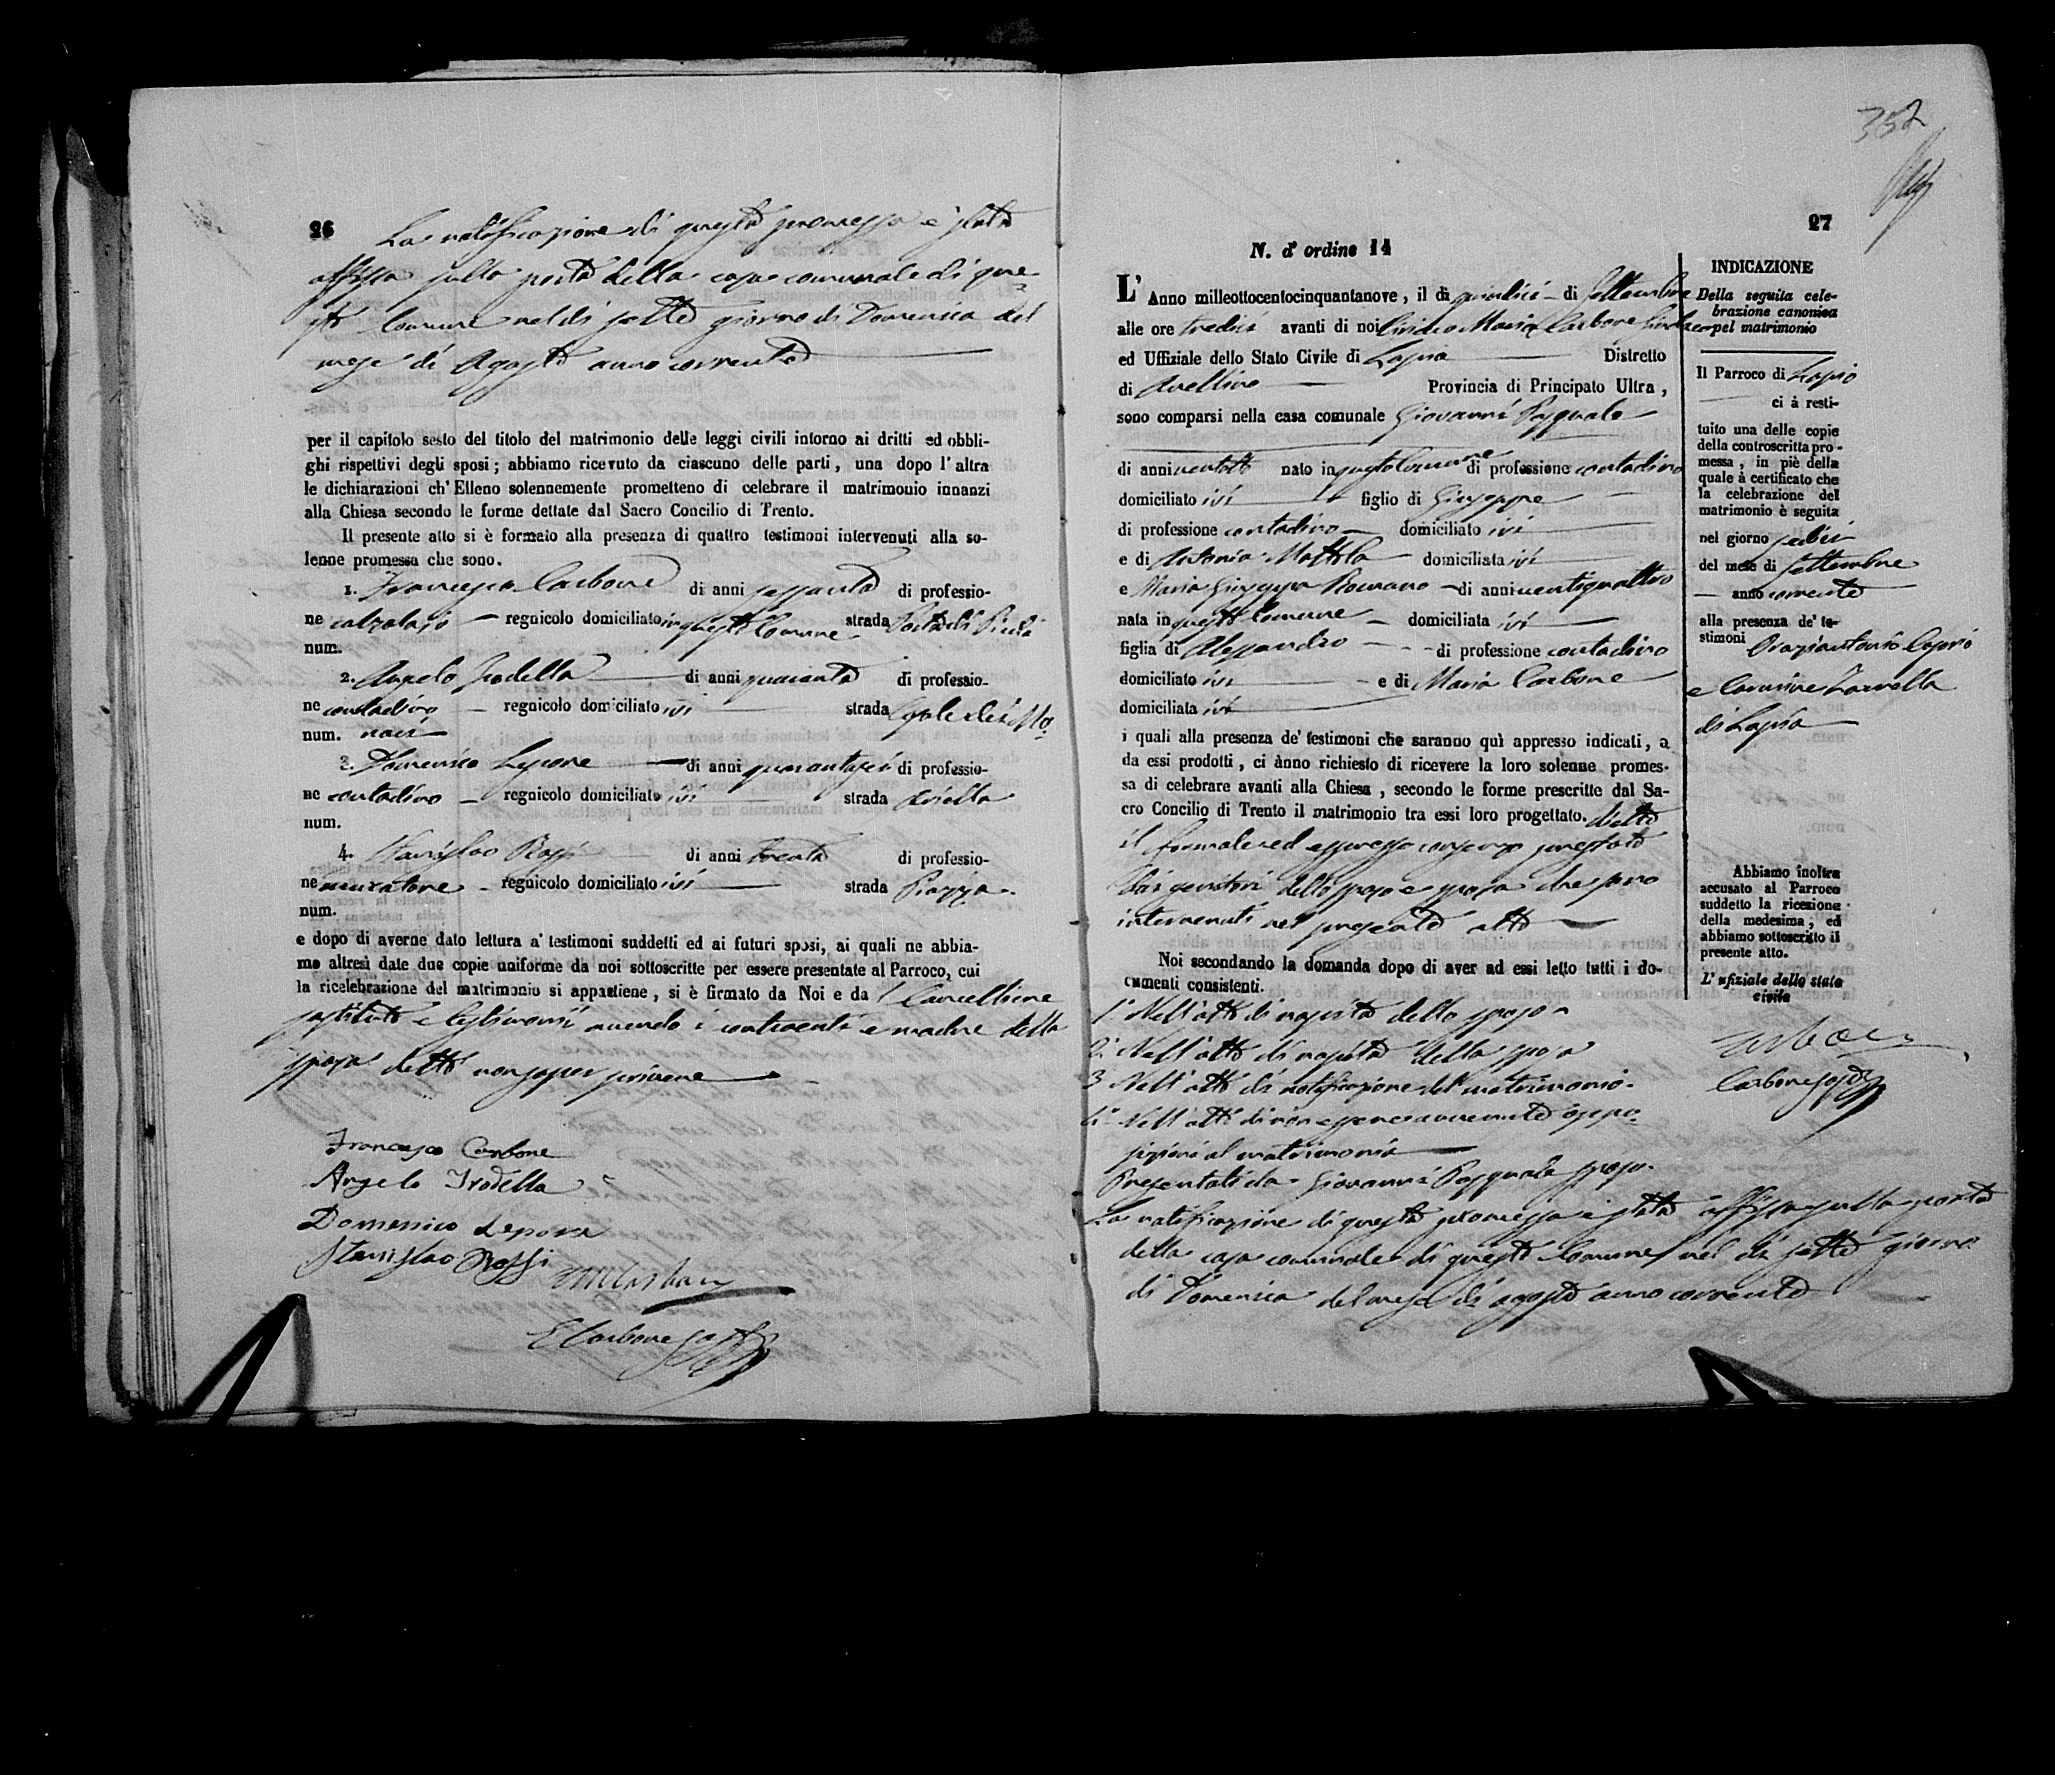 26
La notificazione di questa promessa è stata
affissa sulla porta della casa comunale di que=
sto Comune nel dì sette giorno di Domenica del
mese di Agosto anno corrente
per il capitolo sesto del titolo del matrimonio delle leggi civili intorno ai dritti ed obbli-
ghi rispettivi degli sposi; abbiamo ricevuto da ciascuno delle parti, una dopo l'altra
le dichiarazioni ch'Elleno solennemente prometteno di celebrare il matrimonio innanzi
alla Chiesa secondo le forme dettate dal Sacro Concilio di Trento.
Il presente atto si è formato alla presenza di quattro testimoni intervenuti alla so-
lenne promessa che sono.
1. Francesco Carbone di anni sessanta di professio-
ne calzolajo regnicolo domiciliato in questo Comune strada Porta di
num.
2. Angelo Jrodella di anni quaranta di professio-
ne contadino regnicolo domiciliato ivi strada
num.
3. Domenico Lepore di anni quarantasei di professio-
ne contadino regnicolo domiciliato ivi strada
num.
4. Stanislao Rossi di anni trenta di professio-
ne muratore regnicolo domiciliato ivi strada Piazza
num.
e dopo di averne dato lettura a' testimoni suddetti ed ai futuri sposi, ai quali ne abbia-
mo altresì date due copie uniforme da noi sottoscritte per essere presentate al Parroco, cui
la ricelebrazione del matrimonio si appartiene, si è firmato da Noi e da l Cancelliere
sostituto e testimonii avendo i contraenti e madre della
sposa detto non saper scrivere
Francesco Carbone
Angelo Jrodella
Domenico Lepore
Stanislao Rossi
Carbone sost
352
27
N. d'ordine 14
L' Anno milleottocentocinquantanove, il dì quindici di Settembre
alle ore tredici avanti di noi Maria Carbone Sindaco
ed Uffiziale dello Stato Civile di Lapio Distretto
di Avellino Provincia di Principato Ultra,
sono comparsi nella casa comunale Giovanni Pasquale
di anni ventotto nato in questo Comune di professione contadino
domiciliato ivi figlio di Giuseppe
di professione contadino domiciliato ivi
e di Antonia domiciliata ivi
e Maria Giuseppa Romano di anni ventiquattro
nata in questo Comune domiciliata ivi
figlia di Alessandro di professione contadino
domiciliato ivi e di Maria Carbone
domiciliata ivi
i quali alla presenza de' testimoni che saranno quì appresso indicati, a
da essi prodotti, ci ànno richiesto di ricevere la loro solenne promes-
sa di celebrare avanti alla Chiesa, secondo le forme prescritte dal Sa-
cro Concilio di Trento il matrimonio tra essi loro progettato. dietro
il formale ed espresso consenso prestato
dai genitori dello sposo e sposa che sono
intervenuti nel presente atto
Noi secondando la domanda dopo di aver ad essi letto tutti i do-
cumenti consistenti.
1° Nell'atto di nascita dello sposo
2. Nell'atto di nascita della sposa
3 Nell'atto di notificazione del matrimonio.
4° Nell'atto di non essere avvenute oppo=
sizioni al matrimonio
Presentati da Giovanni Pasquale sposo.
La notificazione di questa promessa è stata affissa sulla porta
della casa comunale di questo Comune nel dì sette giorno
di Domenica del mese di agosto anno corrente
INDICAZIONE
Della seguita cele-
brazione canonica
pel matrimonio
Il Parroco di Lapio
ci à resti-
tuito una delle copie
della controscritta pro-
messa, in piè della
quale à certificato che
la celebrazione del
matrimonio è seguita
nel giorno sedici
del mese di Settembre
anno corrente
alla presenza de' te-
stimoni Oraziantonio
e Carmine
di Lapio
Abbiamo inoltre
accusato al Parroco
suddetto la ricezione
della medesima, ed
abbiamo sottoscritto il
presente atto.
L'ufiziale dello stato
civile
Carbone sost